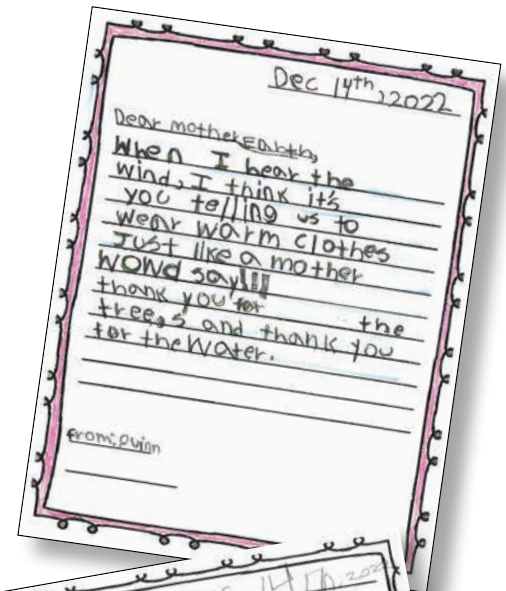 Dec 14th, 2022
Dear mother Earth,
When I hear the
wind, I think it's
you telling us to
wear warm clothes
Just like a mother
WOWd say!!!
thank you for the
trees and thank you
for the Water.
From: Quinn
14th, 2022